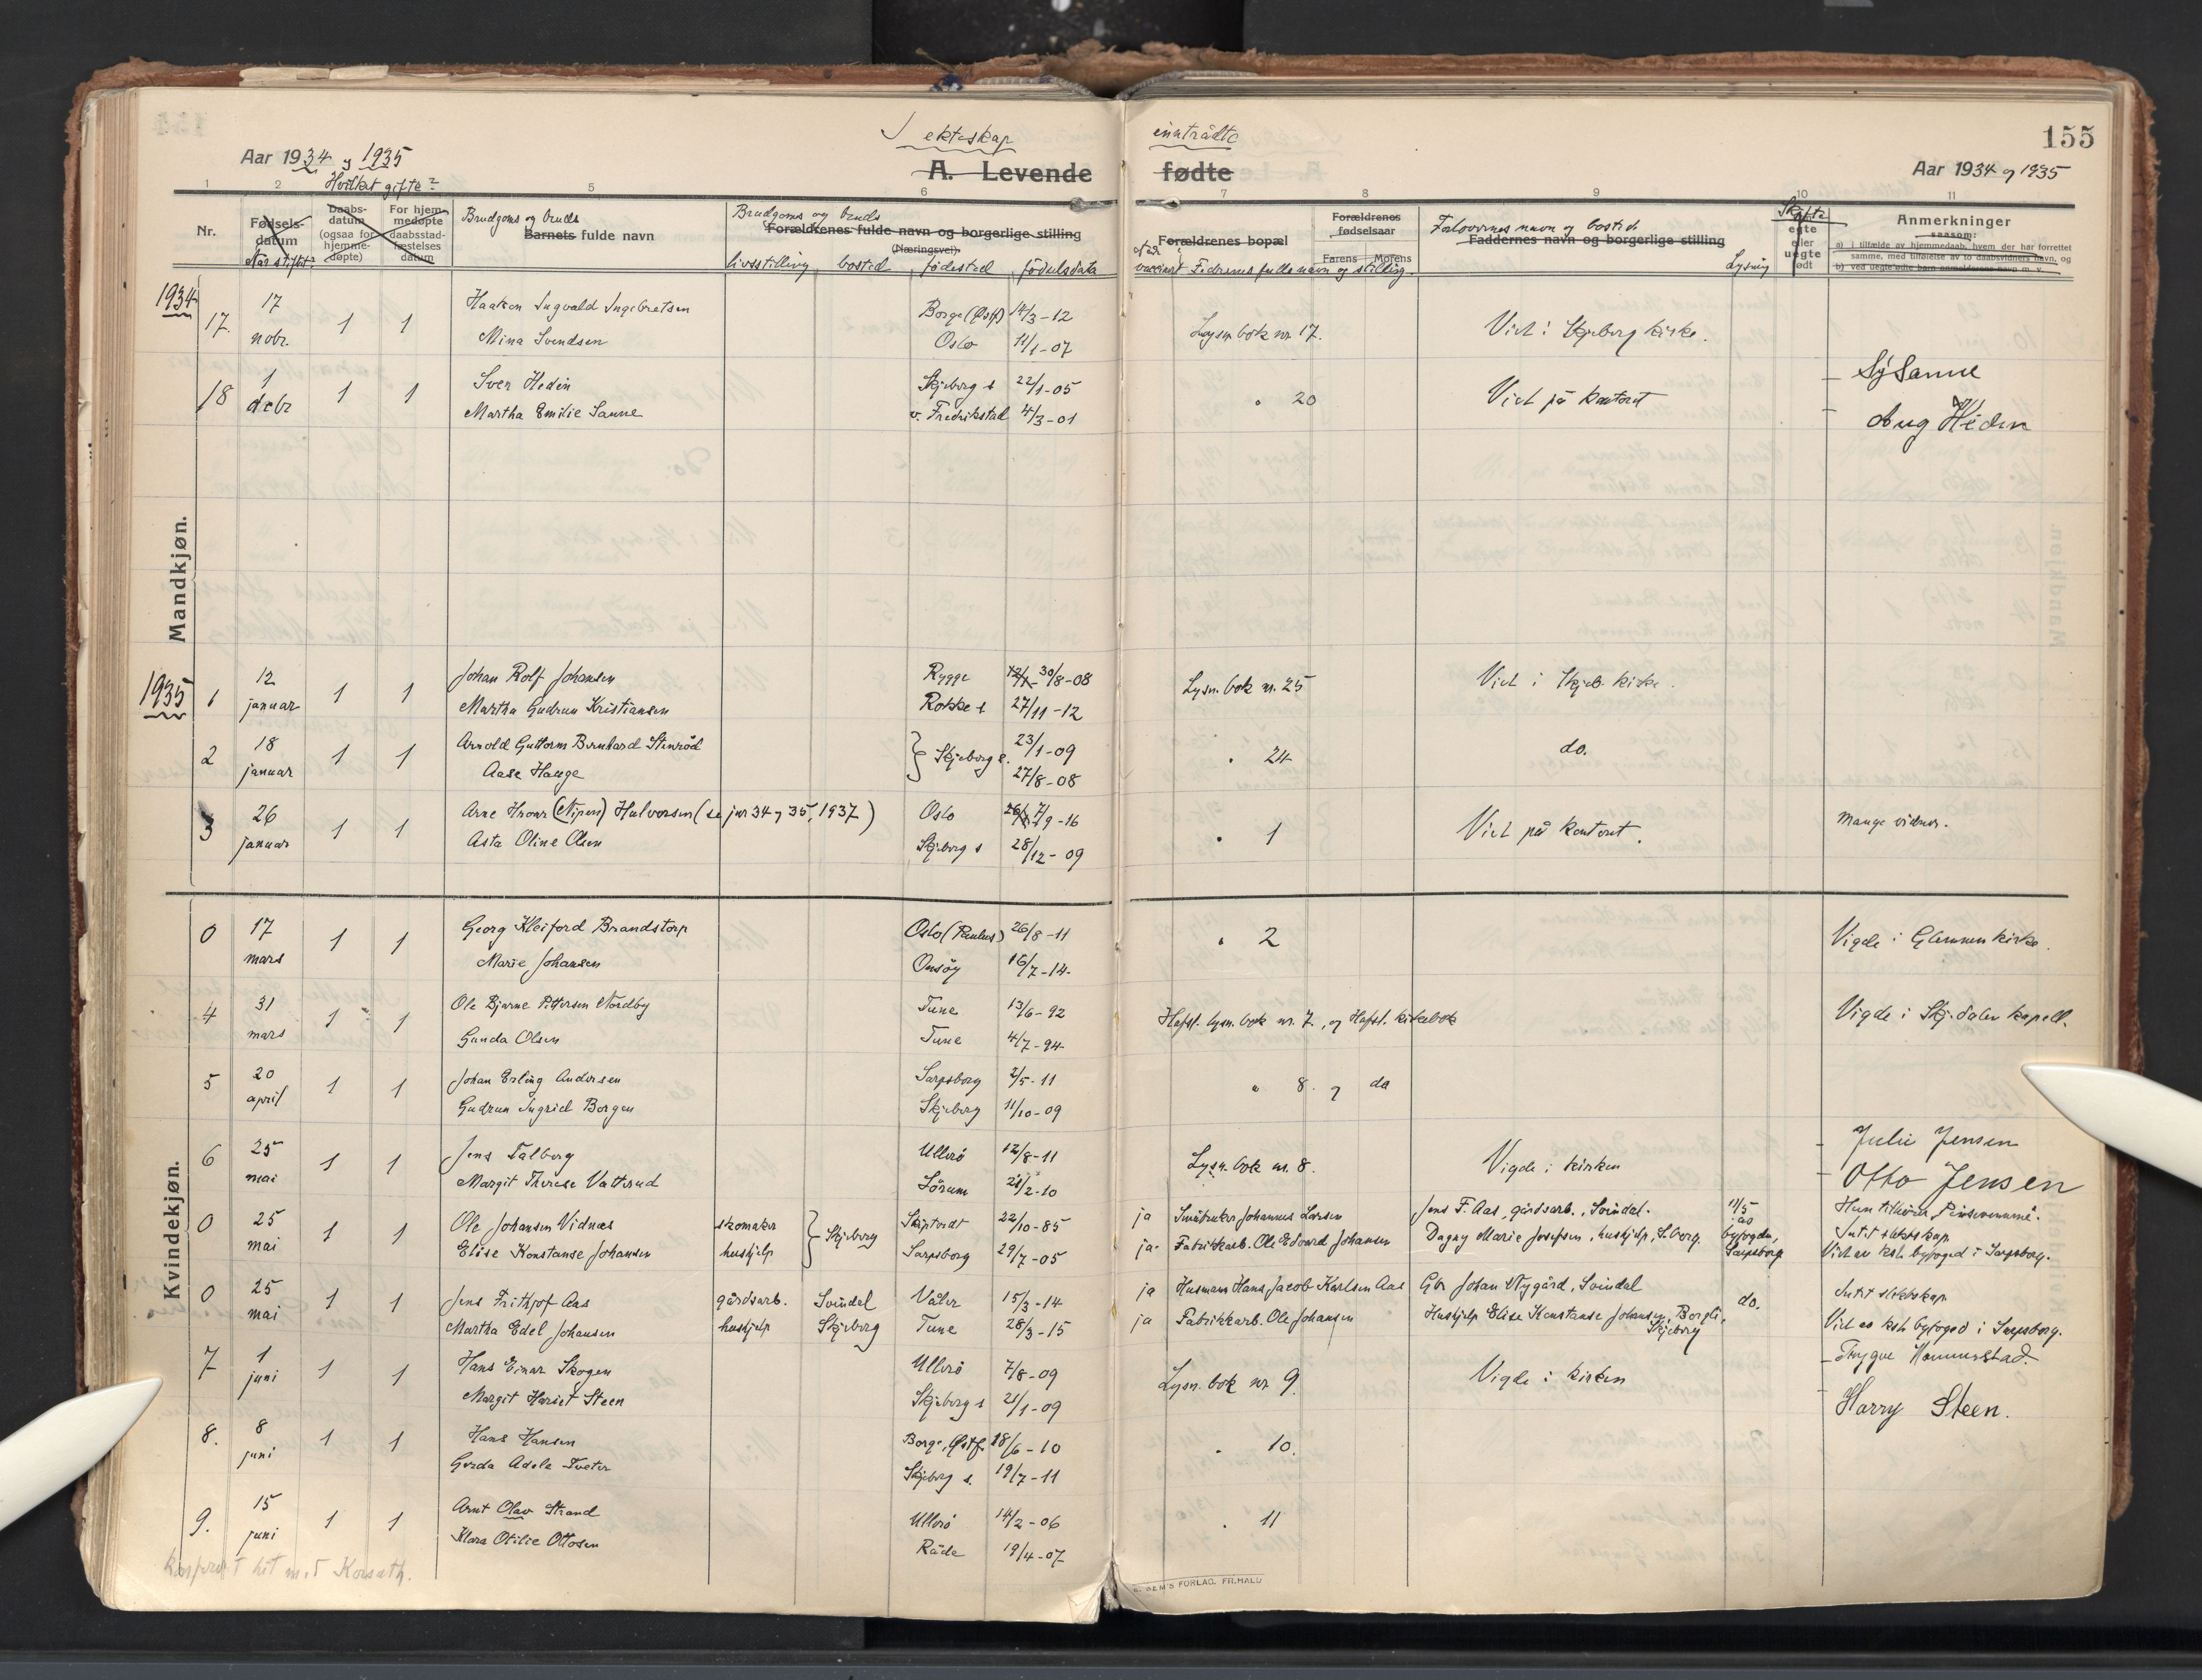 I ekteskap inntrådte
155
Aar 1934 og 1935
A. Levende fødte
Aar 1934 og 1935
Hvilket gifte?
1 2 5 6 7 8 9 10 11
Nr.
Fødsels-
datum
Når stiftet?
Daabs-
datum
(ogsaa for
hjemme-
døpte)
For hjem-
medøpte
daabsstad-
fæstelses
datum
Brudgoms og bruds
Barnets fulde navn
Brudgoms og bruds
Forældrenes fulde navn og borgerlige stilling
(Næringsvei).
livsstilling, bosted, fødested, fødselsdata
Forældrenes bopæl
Når
vaccinert
Fedrenes fulle navn og stilling.
Forældrenes
fødselsaar
Farens Morens
Forlovernes navn og bosted
Faddernes navn og borgerlige stilling
Lysning
Skifte
egte
eller
uegte
født
Anmerkninger
saasom:
a) i tilfælde av hjemmedaab, hvem der har forrettet
samme, med tilføielse av to daabsvidners navn, og
b) ved uegtefødte barn anmelderens navn m. v.
1934
Mandkjøn.
17. 17 nobr. 1 1 Haakon Ingvald Ingebretsen Borge (Østf) 14/3-12 Lysn. bok nr. 17. Viet i Skjeberg kirke.
Mina Svendsen Oslo 11/1-07
18 1 debr 1 1 Sven Hedin Skjeberg s 22/1-05 " 20 Viet på kontoret - Sanne
Martha Emilie Sanne v. Fredrikstad 4/3-01 - Aug Héden
1935
1 12 januar 1 1 Johan Rolf Johansen Rygge 30/8-08 Lysn. bok nr. 25 Viet i Skjeb. kirke.
Martha Gudrun Kristiansen Rokke s 27/11-12
2 18 januar 1 1 Arnold Guttorm Bernhard Stenrød } Skjeberg s. 23/1-09 " 24 do.
Aase Hauge 27/8-08
3 26 januar 1 1 Arne Hroar (Nipen) Halvorsen (se jnr 34 og 35, 1937) Oslo 7/9-16 " 1 Viet på kontoret. Mange vidner.
Asta Oline Olsen Skjeberg s 28/12-09
Kvindekjøn.
0 17 mars 1 1 Georg Kleiford Brandstorp Oslo (Paulus) 26/8-11 " 2 Vigde i Glemmen kirke.
Marie Johansen Onsøy 16/7-14
4 31 mars 1 1 Ole Bjarne Pettersen Nordby Tune 13/6-92 Hafsl. lysn. bok nr. 7, og Hafsl. kirkebok Vigde i Skj.dalen kapell.
Gunda Olsen Tune 4/7-94
5 20 april 1 1 Johan Erling Andersen Sarpsborg 2/5-11 " 8. og do
Gudrun Ingrid Borgen Skjeberg 11/10-09
6 25 mai 1 1 Jens Talberg Ullerø 12/8-11 Lysn. bok nr. 8. Vigde i kirken - Julie Jensen
Margit Therese Vatterud Sørum 21/2-10 - Otto Jensen
0 25 mai 1 1 Ole Johansen Vidnæs skomaker } Skjeberg Skiptvedt 22/10-85 ja Småbruker Johannes Larsen Jens F. Aas, gårdsarb., Svindal. 11/5 Hun tilhører Pinsevennene.
Elise Konstanse Johansen hushjelp Sarpsborg 29/7-05 ja Fabrikkarb. Ole Edvard Johansen Dagny Marie Josefsen, hushjelp, S.borg. byfogden, Sarpsborg Intet slektskap
Viet av kst. byfoged i Sarpsborg.
0 25 mai 1 1 Jens Frithjof Aas gårdsarb. Svindal Våler 15/3-14 ja Husmann Hans Jacob Karlsen Aas Gbr Johan Nygård, Svindal do. Intet slektskap
Martha Edel Johansen hushjelp Skjeberg Tune 28/3-15 ja Fabrikkarb. Ole Johansen Hushjelp Elise Konstanse Johansen, Borgli, Skjeberg Viet av kst. byfoged i Sarpsborg.
7 1 juni 1 1 Hans Einar Skogen Ullerø 7/8-09 Lysn. bok nr 9. Vigde i kirken - Trygve Hammerstad.
Margit Hariet Steen Skjeberg s 21/1-09 - Harry Steen.
8. 8 juni 1 1 Hans Hansen Borge, Østf. 18/6-10 " 10.
Gerda Adele Tveter Skjeberg s. 19/7-11
9. 15 juni 1 1 Arnt Olav Strand Ullerø 14/2-06 " 11
Klara Otilie Ottosen Råde 19/4-07
hit med
SEM'S FORLAG. FR.HALD